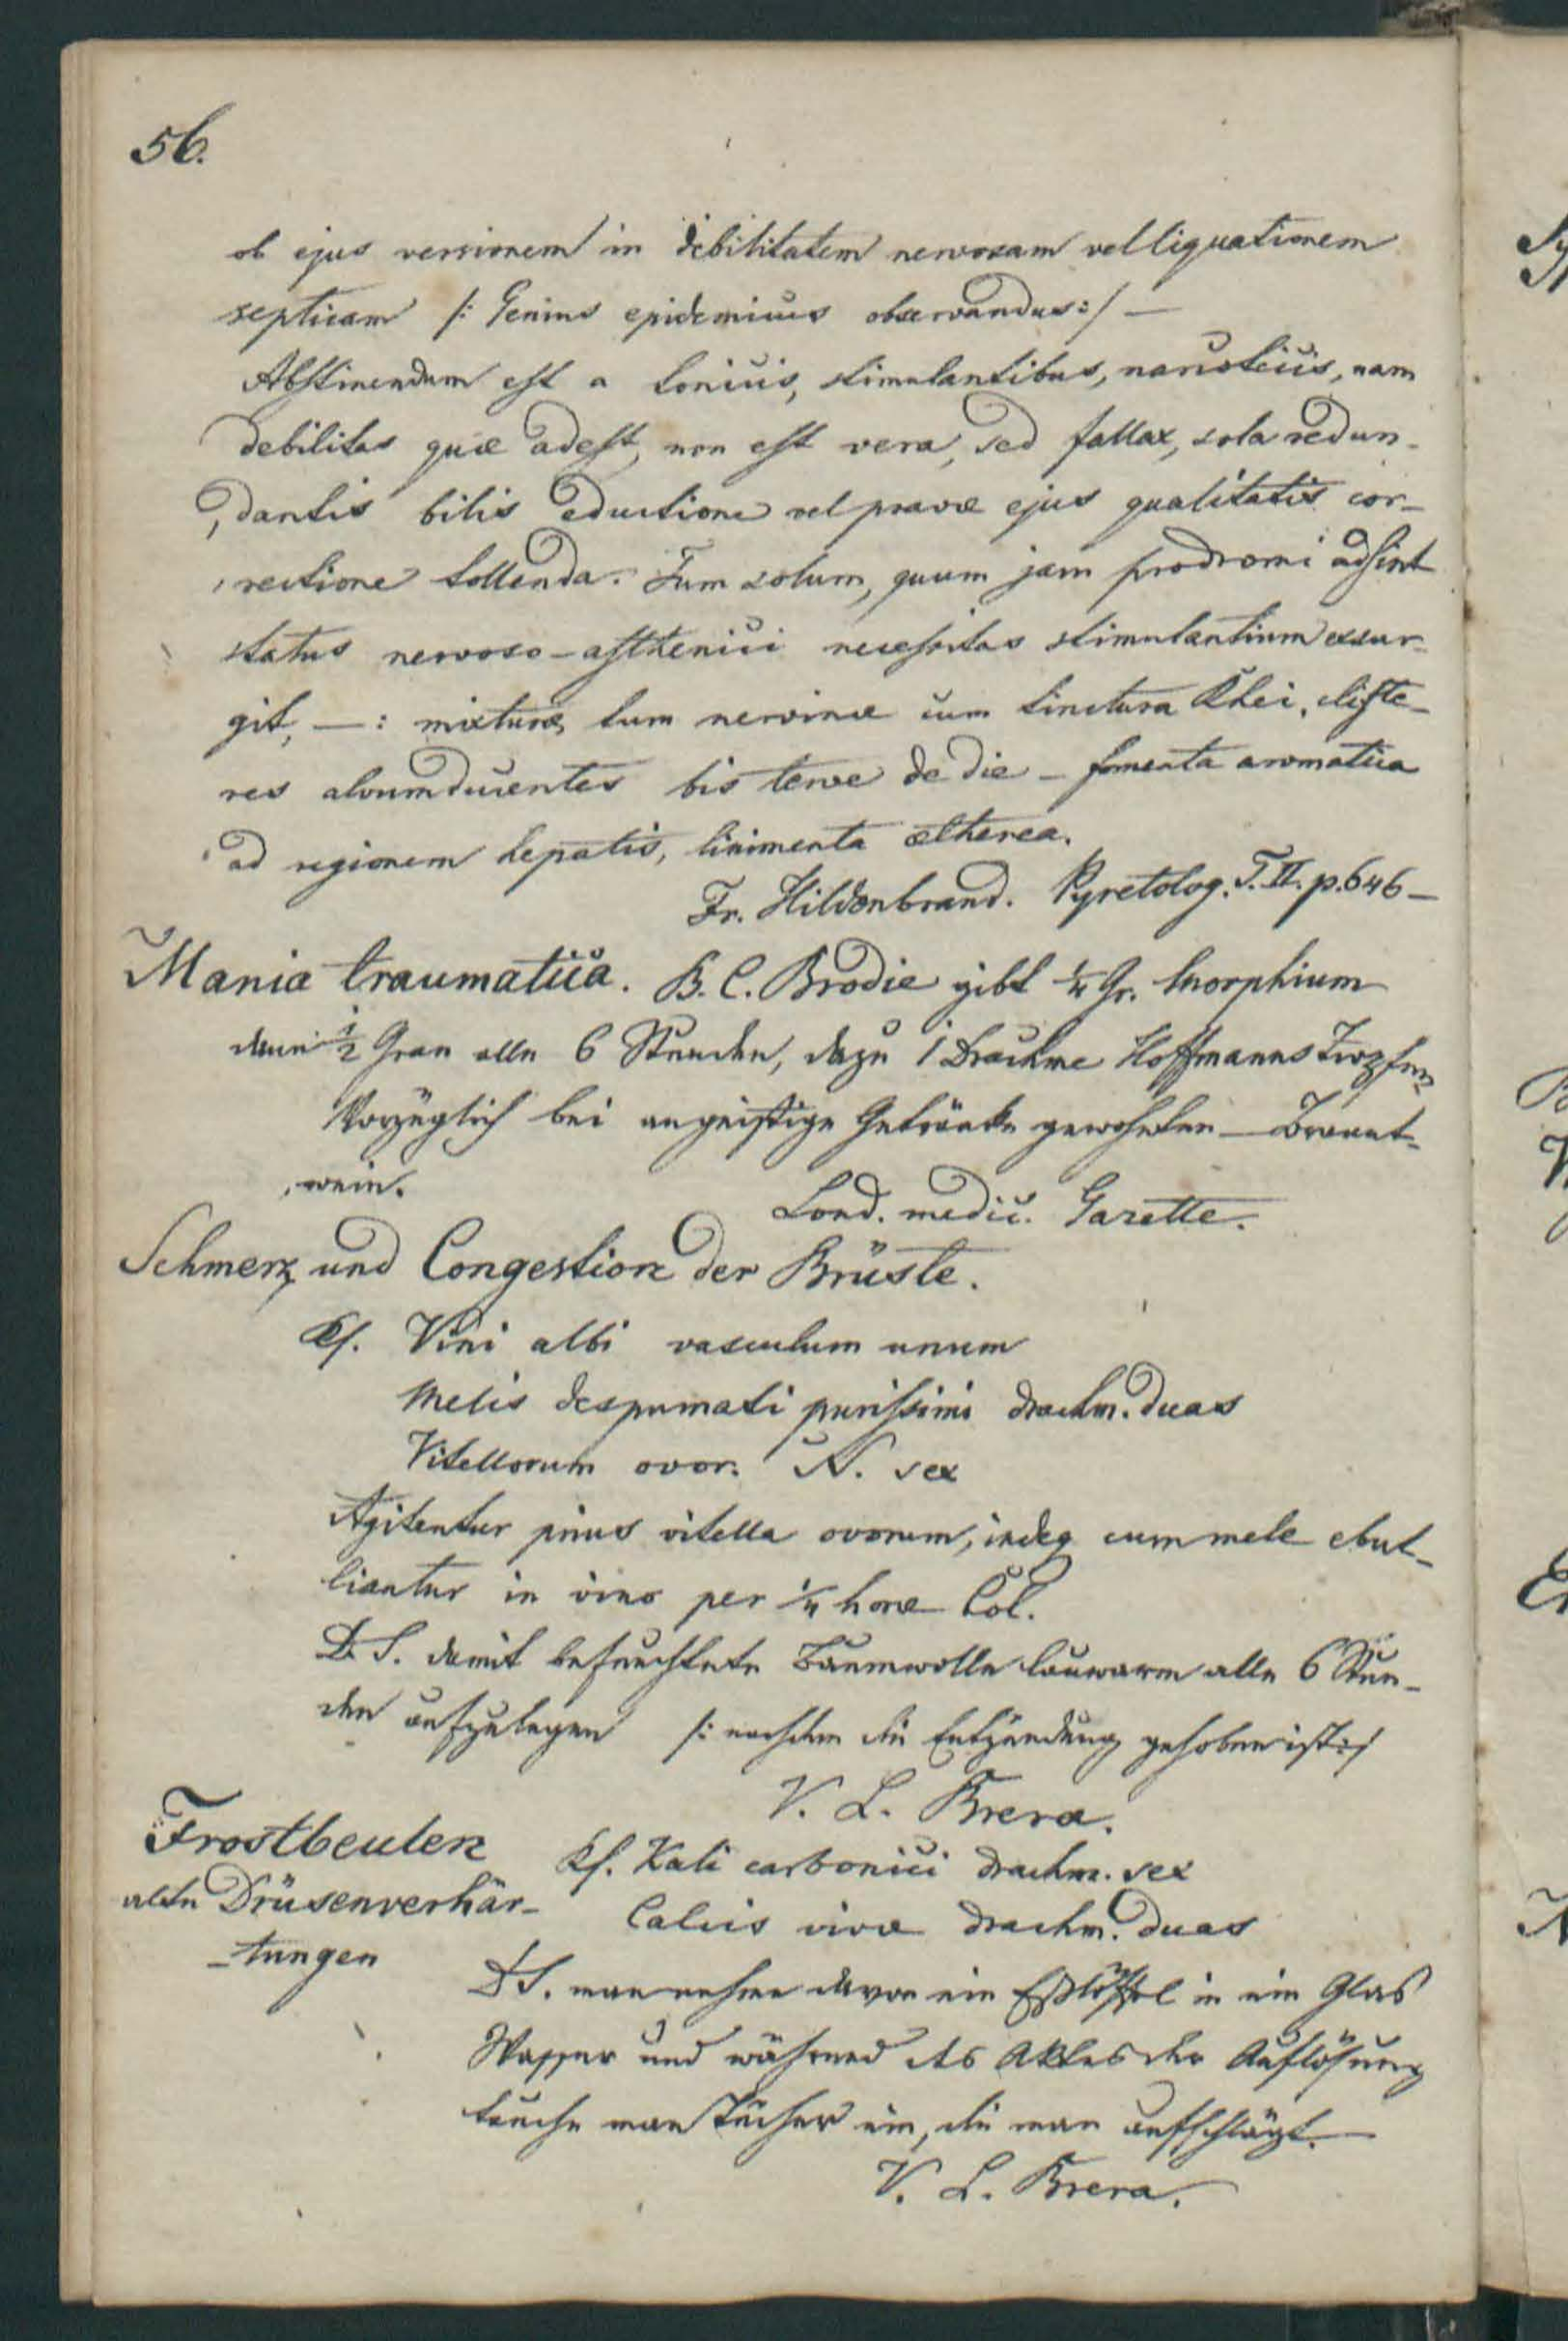 56.
ob ejus versionem in debilitatem nervosam vel liquationem
septicam /: Genius epidemicus observandus :/ —
Abstinendum est a tonicis, stimulantibus, narcoticis, nam
debilitas quæ adest, non est vera, sed fallax, sola redun-
dantis bilis eductione vel pravæ ejus qualitatis cor-
rectione tollenda. Tum solum, quum jam prodromi adsint
status nervoso-asthenici necessitas stimulantium exsur-
git, —: mixturæ tum nervinæ cum tinctura Rhei, cliste-
res alvumducentes bis terve de die — fomenta aromatica
ad regionem hepatis, linimenta ætherea.
Fr. Hildenbrand. Pyretolog. T. II. p. 646 —
Mania traumatica. B. C. Brodie gibt ¼ Gr. Morphium
dann ½ Gran alle 6 Stunden, dazu 1 Drachme Hoffmanns Tropfen
Vorzüglich bei an geistige Getränke gewohnten — Brannt-
wein.
Lond. medic. Gazette.
Schmerz und Congestion der Brüste.
Rf. Vini albi vasculum unum
Melis despumati purissimi drachm. duas
Vitellorum ovor. N. sex
Agitentur prius vitella ovorum, indeq cum mele ebul-
liantur in vino per ¼ horæ Col.
D. S. damit befeuchtete Baumwolle lauwarm alle 6 Stun-
den aufzulegen /: nachdem die Entzündung gehoben ist :/
V. L. Brera.
Frostbeulen
alte Drüsenverhär-
-tungen
Rf. Kali carbonici drachm. sex
Calcis vivæ drachm. duas
D S. man nehme davon ein Eßlöffel in ein Glas
Wasser und während des Aktes der Auflösung
tauche man Tücher ein, die man aufschlägt. —
V. L. Brera.